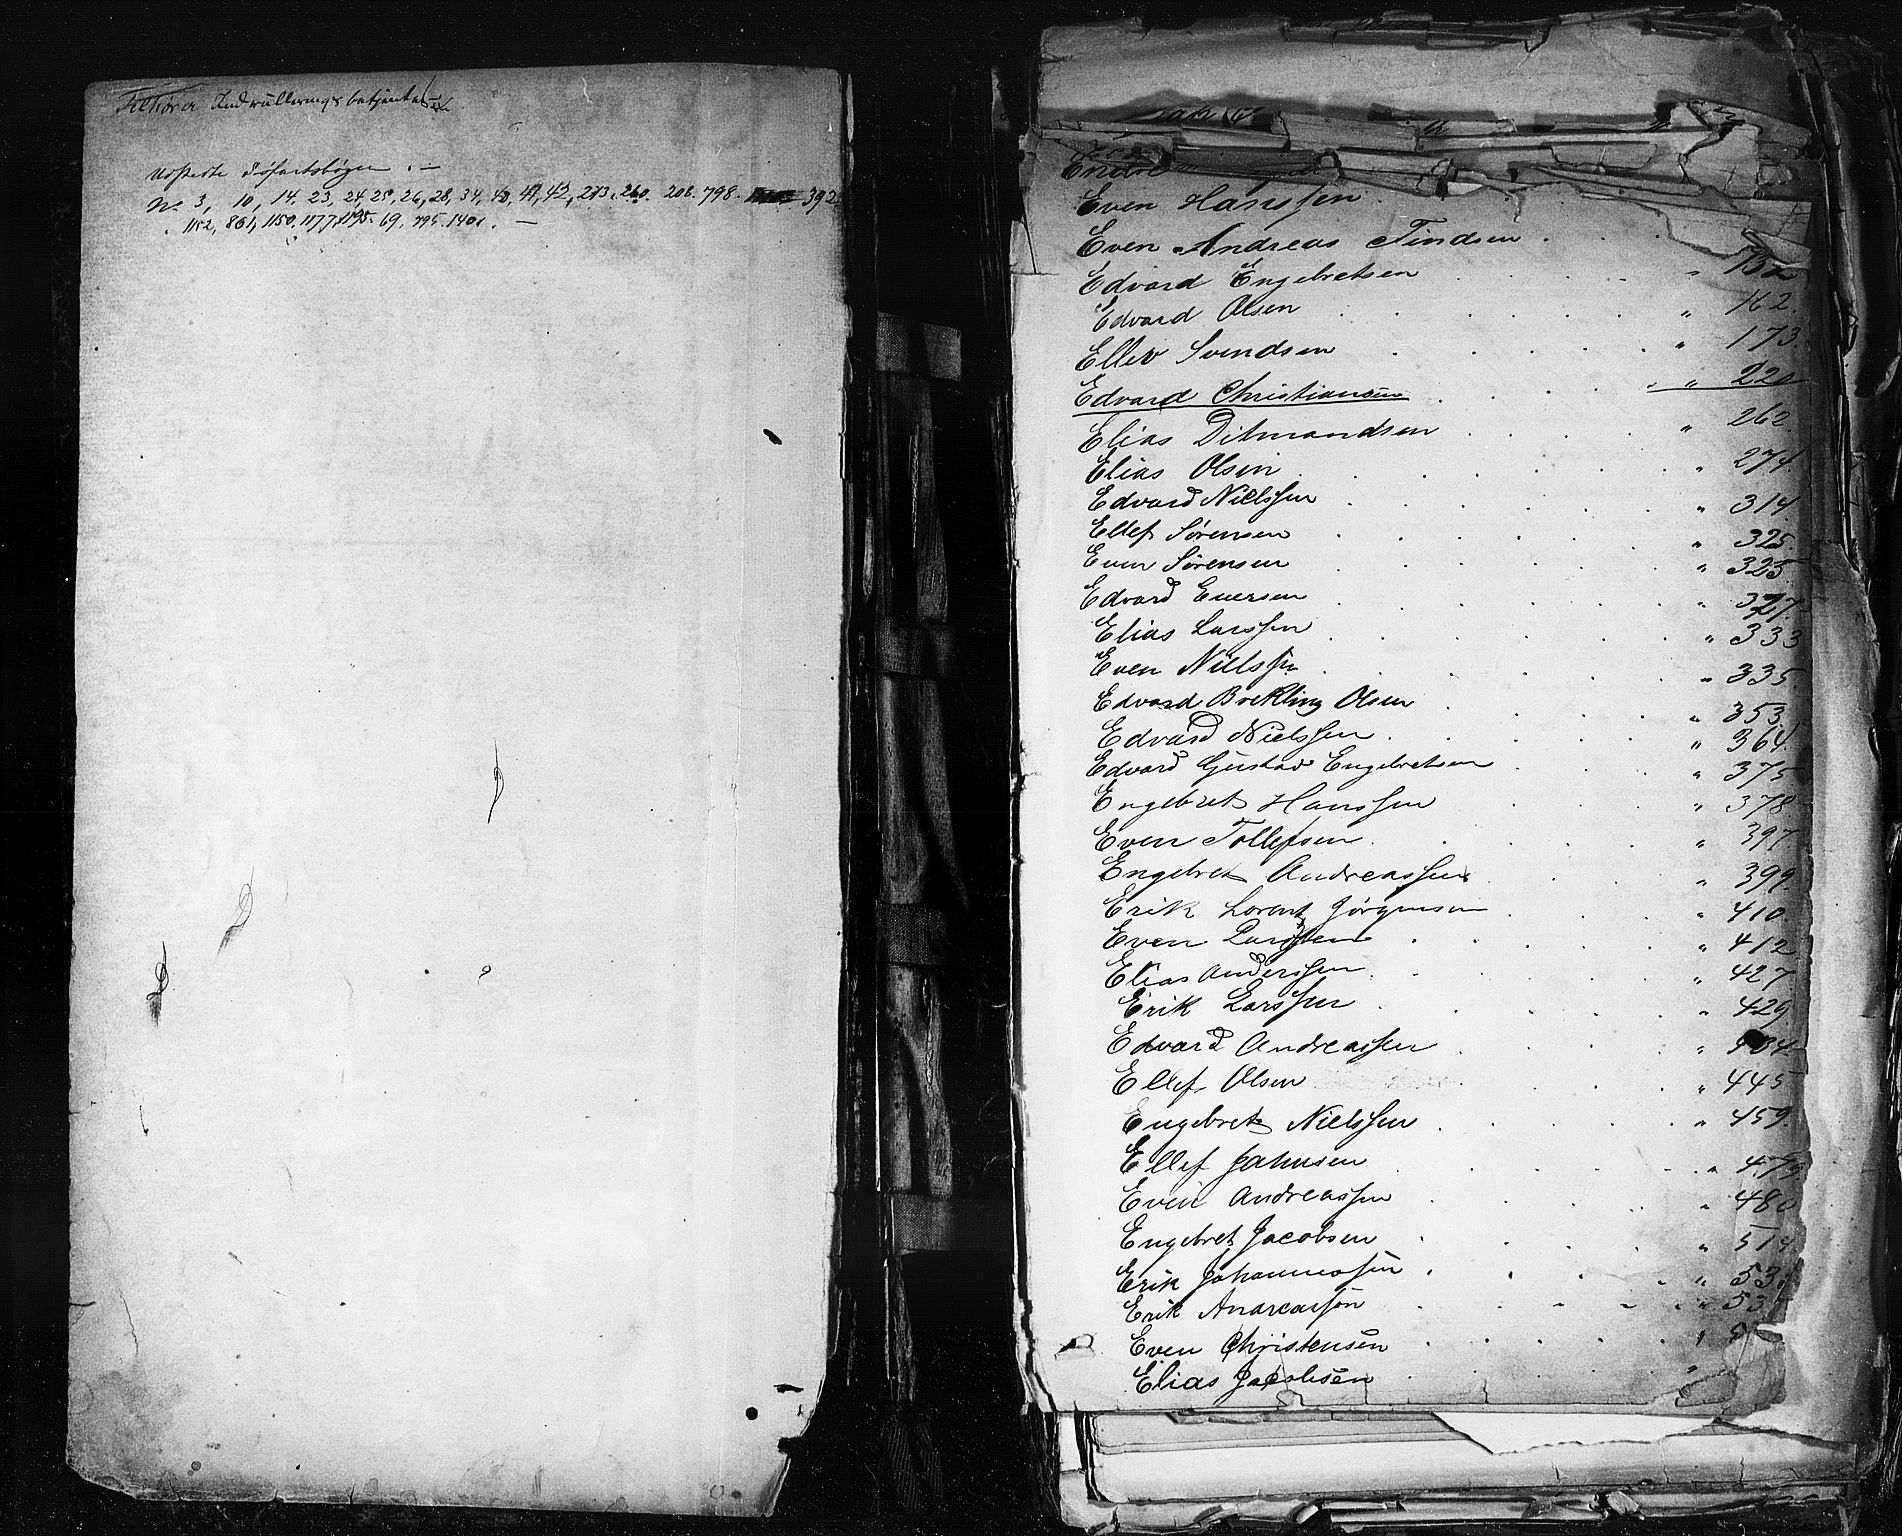 Tilhører Indrulleringsbetjenten
Udstedte Søfartsbøger . —
No 3, 10, 14. 23, 24, 25, 26, 28, 34, 40, 41, 42, 273, 260. 208. 798. 392.
1152, 861, 1150, 1177, 1195. 69. 795. 1401. —
Endre
Even Hanssen
Even Andreas Findsen
Edvard Engebretsen " 132
Edvard Olsen " 162.
Ellev Svendsen " 173.
Edvard Christiansen " 220
Elias Ditmandsen " 262
Elias Olsen " 274.
Edvard Nielssen " 314
Ellef Sørensen " 325.
Even Sørensen " 325
Edvard Evensen " 327.
Elias Larssen " 333
Even Nielssen " 335.
Edvard Brekling Olsen " 353
Edvard Nielssen " 364.
Edvard Gustav Engebretsen " 375
Engebret Hanssen " 378
Even Tollefsen " 397.
Engebret Andreassen " 399.
Erik Lorentz Jørgensen " 410.
Even Larssen " 412
Elias Anderssen " 427
Erik Larssen " 429.
Edvard Andreassen " 434
Ellef Olsen " 445
Engebret Nielssen " 459.
Ellef Jahnsen " 479.
Even Andreassen " 480
Engebret Jacobsen " 514
Erik Johannessen " 53
Erik Andreassen " 53
Even Christensen " 5
Elias Jacobsen "